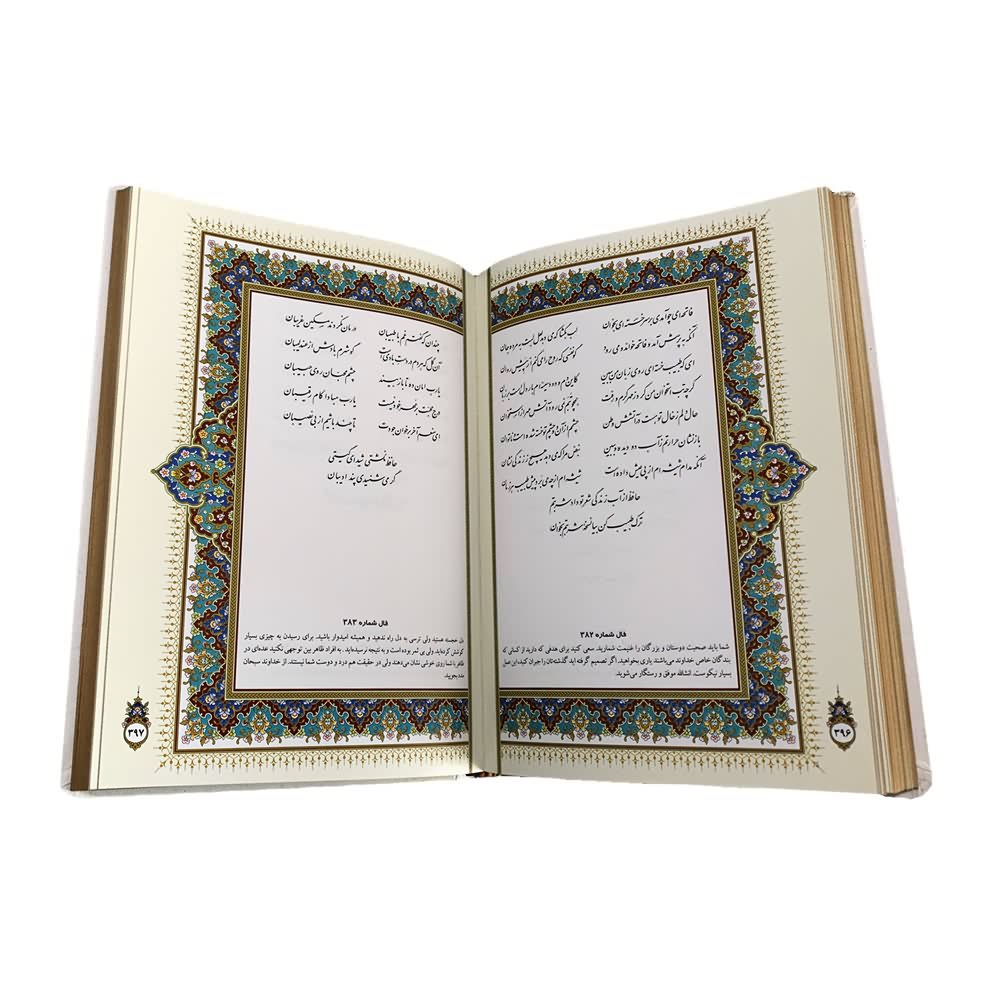 فاتحه‌ای چو آمدی بر سر خسته‌ای بخوان لب بگشا که می‌دهد لعل لبت به مرده جان
آنکه به پرسش آمد و فاتحه خواند و می‌رود گو نفسی که روح را می‌کنم از پیش روان
ای که طبیب خسته‌ای روی زبان من ببین کاین دم و دود سینه‌ام بار دل است بر زبان
گرچه تب استخوان من کرد ز مهر گرم و رفت همچو تبم نمی‌رود آتش مهر از استخوان
حال دلم ز خال تو هست در آتشش وطن چشمم از آن دو چشم تو خسته شده است و ناتوان
بازنشان حرارتم ز آب دو دیده و ببین نبض مرا که می‌دهد هیچ ز زندگی نشان
آنکه مدام شیشه‌ام از پی عیش داده است شیشه‌ام از چه می‌برد پیش طبیب هر زمان
حافظ از آب زندگی شعر تو داد شربتم
ترک طبیب کن بیا نسخه شربتم بخوان
فال شماره ۳۸۲
شما باید صحبت دوستان و بزرگان را غنیمت شمارید. سعی کنید برای هدفی که دارید از کسانی که
بندگان خاص خداوند می‌باشند، یاری بخواهید. اگر تصمیم گرفته اید گذشته‌تان را جبران کنید، این عمل
بسیار نیکوست. انشالله موفق و رستگار می‌شوید.
۳۹۶
چندان که گفتم غم با طبیبان درمان نکردند مسکین غریبان
آن گل که هر دم در دست بادی است گو شرم بادش از عندلیبان
یارب امان ده تا باز بیند چشم محبان روی حبیبان
درج محبت بر مهر خود نیست یارب مبادا کام رقیبان
ای منعم آخر بر خوان جودت تا چند باشیم از بی نصیبان
حافظ نگشتی شیدای گیتی
گر می شنیدی پند ادیبان
فال شماره ۳۸۳
دل خجسته هستید ولی ترسی به دل راه ندهید و همیشه امیدوار باشید. برای رسیدن به چیزی بسیار
کوشش کرده‌اید، ولی بی ثمر بوده است و به نتیجه نرسیده‌اید. به افراد ظاهر بین توجهی نکنید عده‌ای در
ظاهر با شما روی خوشی نشان می‌دهند ولی در حقیقت هم درد و دوست شما نیستند. از خداوند سبحان
مدد بجویید.
۳۹۷